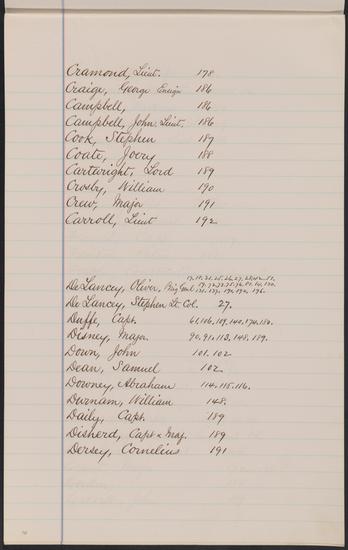 Cramond, Lieut. 178
Craige, George Ensign 186
Campbell, 186
Campbell, John Lieut. 186
Cook, Stephen 187
Coate, Joery 188
Cartwright, Lord 189
Crosby, William 190
Crew, Major 191
Carroll, Lieut 192
De Lancey, Oliver, Brig Genl
De Lancey, Stephen Lt. Col. 27.
Duffe, Capt. 61, 106, 109, 140, 174, 180.
Disney, Major 90, 91, 113, 148, 189.
Down, John 101. 102
Dean, Samuel 102.
Downey, Abraham 114. 115. 116.
Durnam, William 148.
Daily, Capt. 189
Disherd, Capt & Maj. 189
Dersey, Cornelius 191